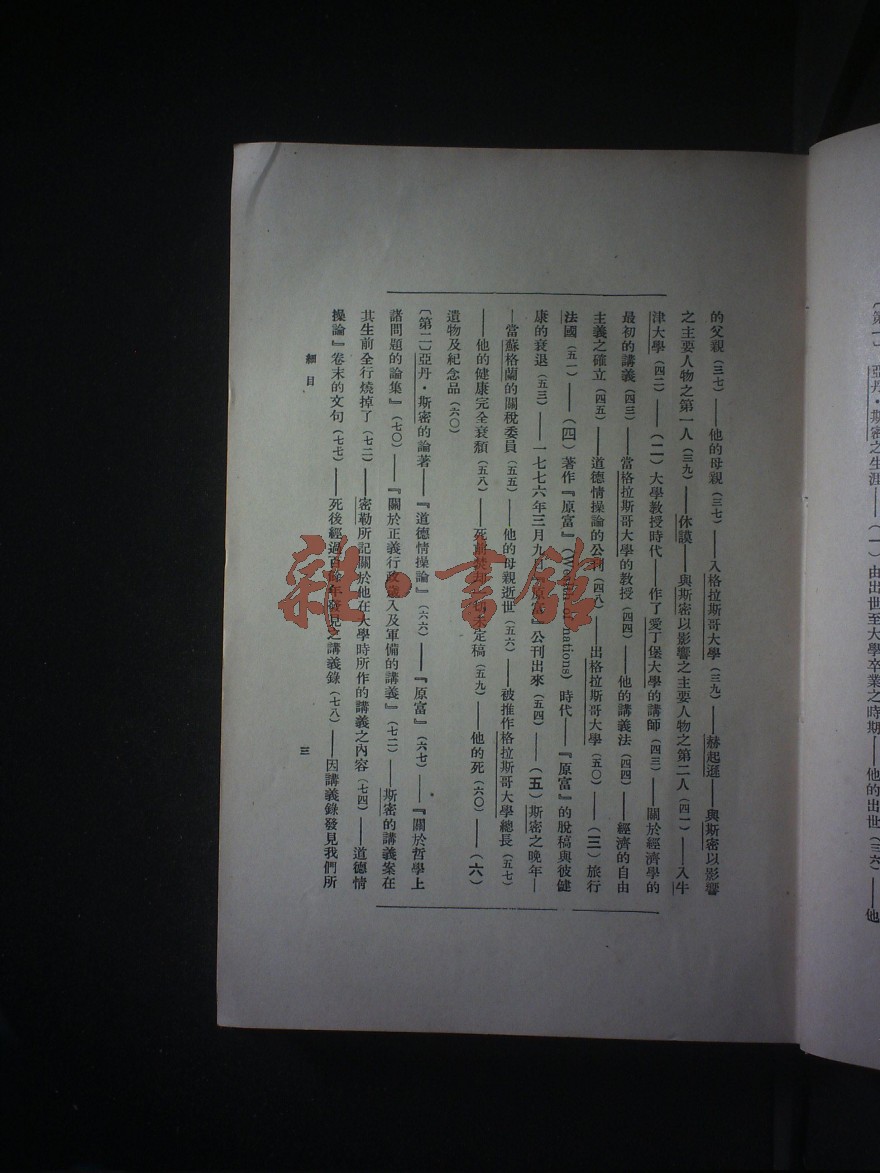 〔第一〕亞丹・斯密之生涯——(一)由出世至大學卒業之時期——他的出世(三六)——他
的父親(三七)——他的母親(三七)——入格拉斯哥大學(三九)——赫起遜——與斯密以影響
之主要人物之第一人(三九)——休謨——與斯密以影響之主要人物之第二人(四一)——入牛
津大學(四二)——(二)大學教授時代——作了愛丁堡大學的講師(四三)——關於經濟學的
最初的講義(四三)——當格拉斯哥大學的教授(四四)——他的講義法(四四)——經濟的自由
主義之確立(四五)——道德情操論的公刊(四八)——出格拉斯哥大學(五〇)——(三)旅行
法國(五一)——(四)著作『原富』(Wealth of nations)時代——『原富』的脫稿與彼健
康的衰退(五三)——一七七六年三月九日『原富』公刊出來(五四)——(五)斯密之晚年—
—當蘇格蘭的關稅委員(五五)——他的母親逝世(五六)——被推作格拉斯哥大學總長(五七)
——他的健康完全衰頹(五八)——死前焚却一切未定稿(五九)——他的死(六〇)——(六)
遺物及紀念品(六〇)
〔第二〕亞丹・斯密的論著——『道德情操論』(六六)——『原富』(六七)——『關於哲學上
諸問題的論集』(七〇)——『關於正義行政歲入及軍備的講義』(七二)——斯密的講義案在
其生前全行燒掉了(七二)——密勒所記關於他在大學時所作的講義之內容(七四)——道德情
操論』卷末的文句(七七)——死後經過百餘年發見之講義錄(七八)——因講義錄發見我們所
細目
三
雜・書館